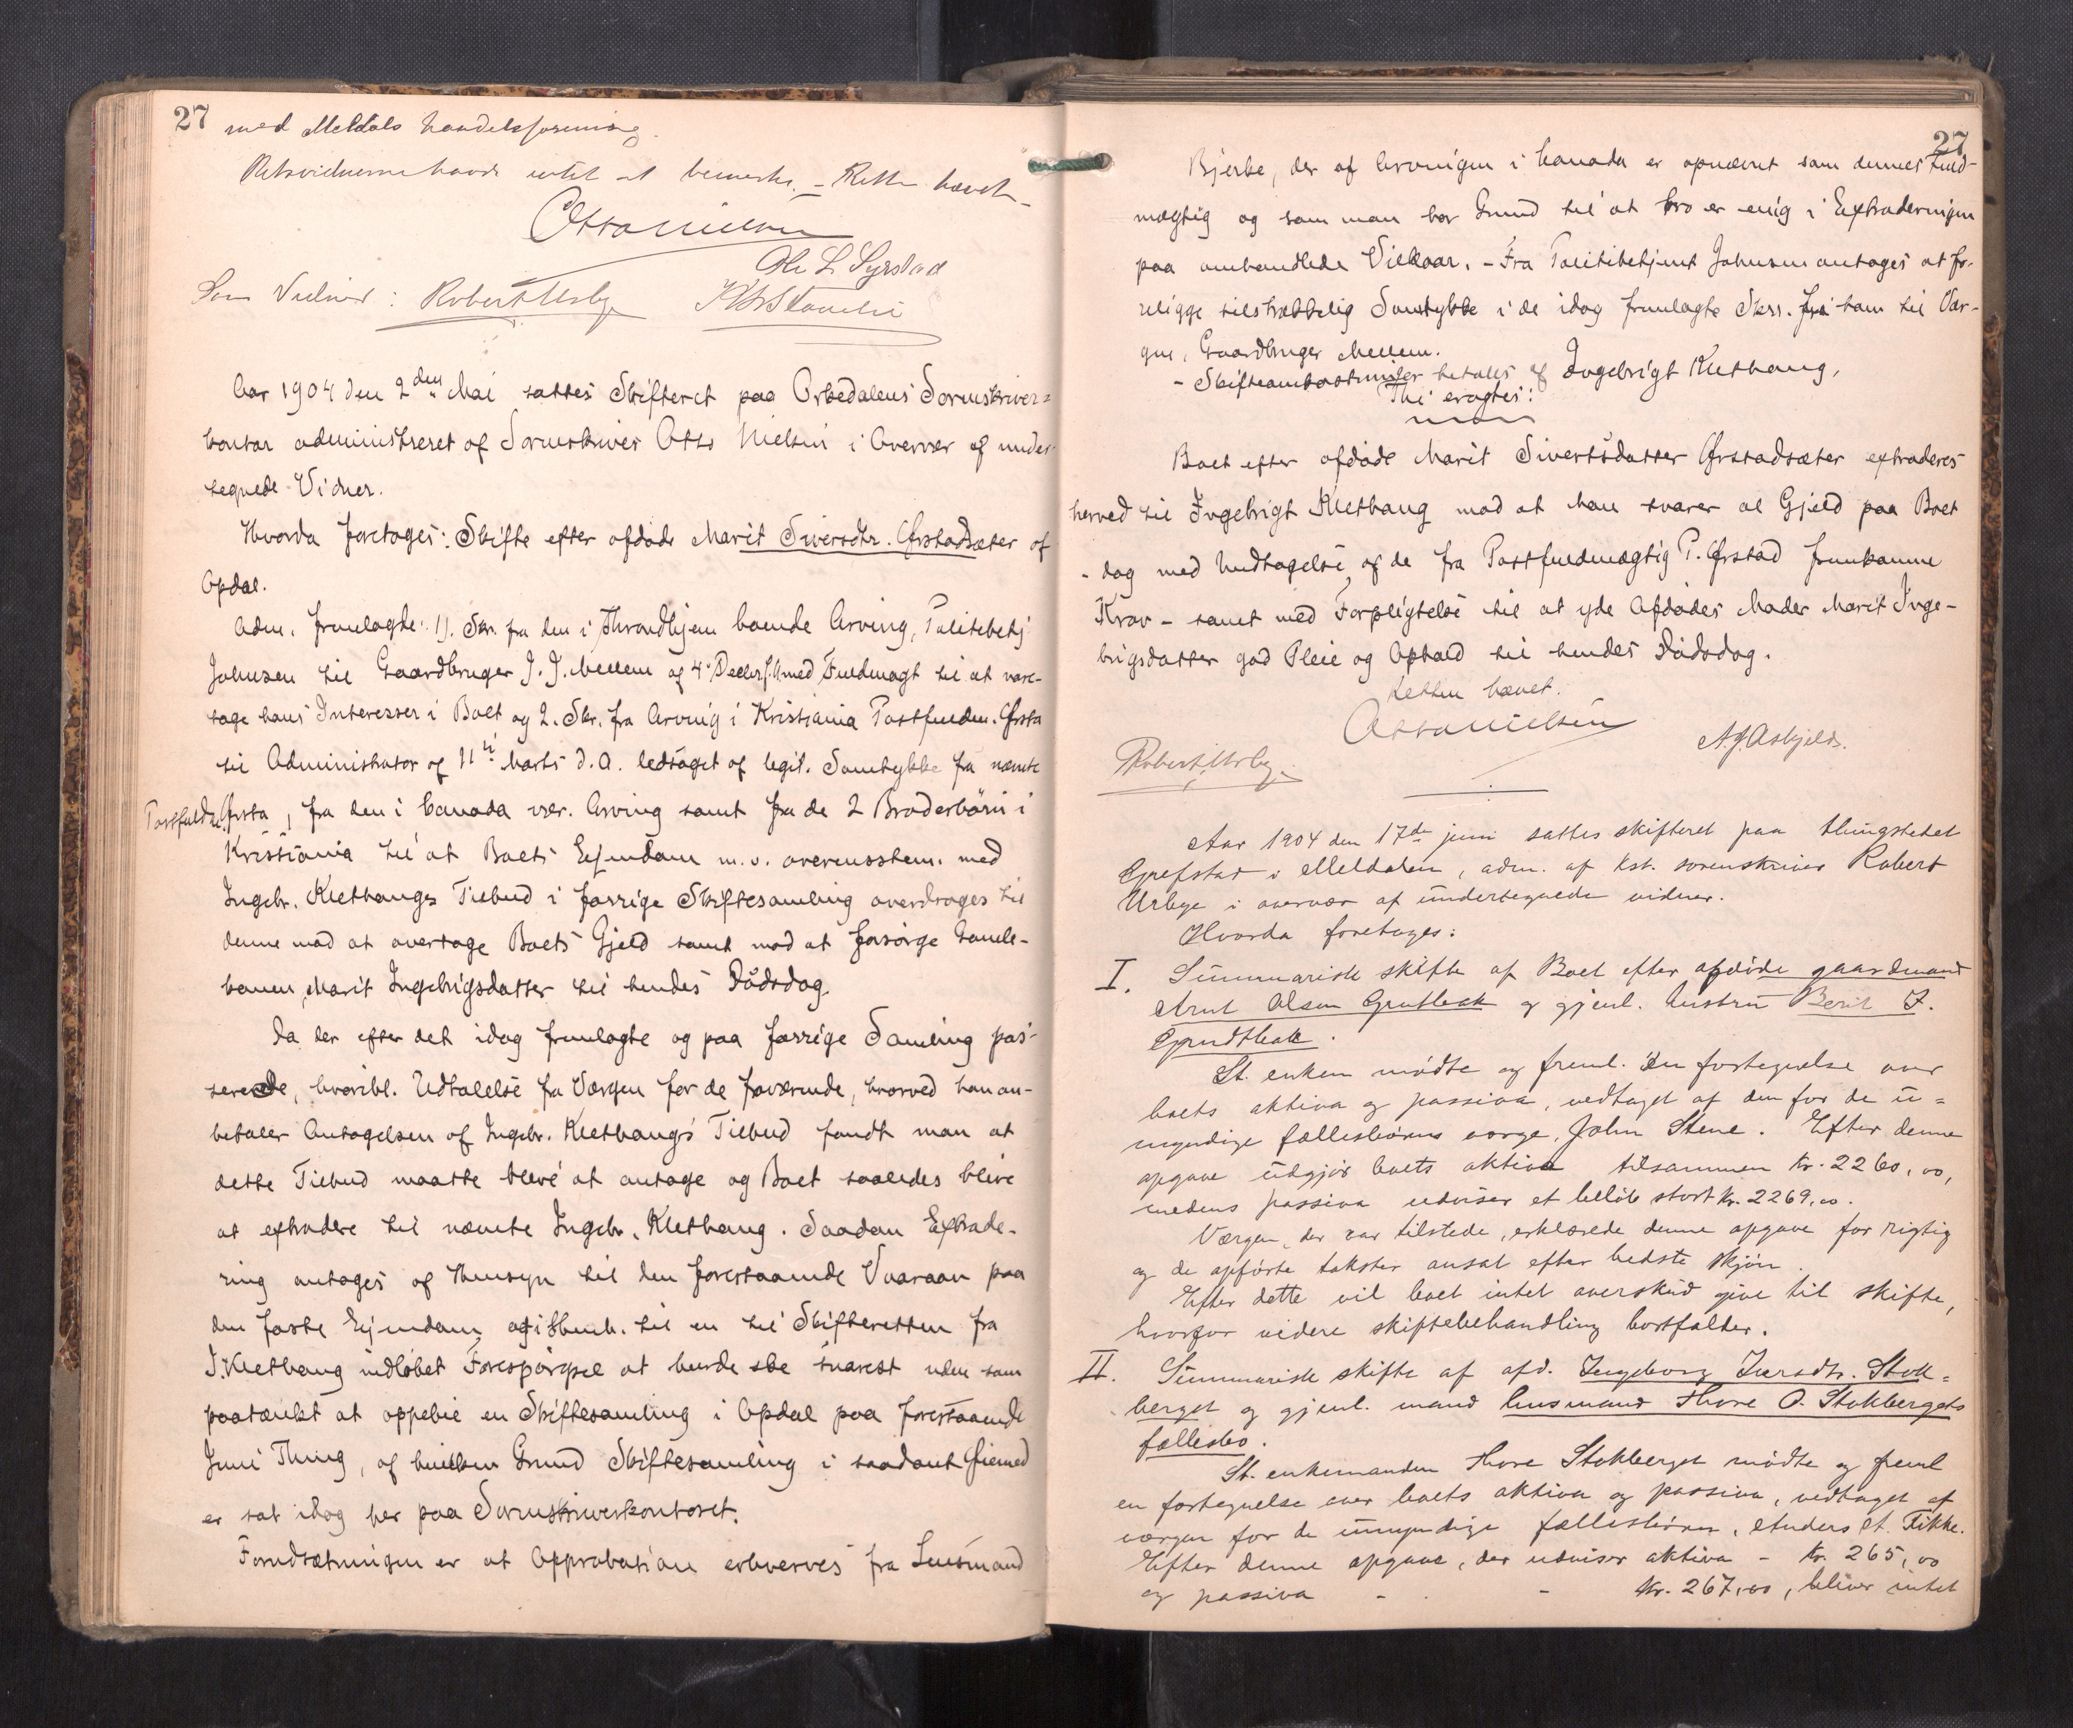 27
med Meldals handelsforening.
Rekvidenterne havde intet at bemerke. – Retten hævet –
Otto Nielsen
Ole L. Syrstad
Som Vidner: Robert Urbye
Aar 1904 den 2den Mai sattes Skifteret paa Orkedalens Sorenskriver=
kontor administreret af Sorenskriver Otto Nielsen i Overvær af under
tegnede Vidner.
Hvorda foretoges: Skifte efter afdøde Marit Sivertsdtr. Ørstadsæter af
Opdal.
Adm. fremlagde: 1). Skr. fra den i Throndhjem boende Arving, Politibetj.
Johnsen til Gaardbruger J. J. Mellem af 4de Decbr f.A med Fuldmagt til at vare-
tage hans Interesser i Boet og 2. Skr. fra Arving i Kristiania Postfuldm. Ørsta
til Administrator af 11te Marts d.A. ledsaget af legit. Samtykke fra nævnte
Postfuldm. Ørsta, fra den i Canada vær. Arving samt fra de 2 Broderbørn i
Kristiania til at Boets Ejendom m.v. overensstem. med
Ingebr. Klethaugs Tilbud i forrige Skiftesamling overdrages til
denne mod at overtage Boets Gjeld samt mod at forsørge Gamle-
konen, Marit Ingebrigsdatter til hendes Dødsdag.
Da der efter det idag fremlagte og paa forrige Samling pas-
serede, hvoribl. Udtalelse fra Værgen for de fraværende, hvorved han an-
befaler Antagelsen af Ingebr. Klethaugs Tilbud fandt man at
dette Tilbud maatte blive at antage og Boet saaledes blive
at extradere til nævnte Ingebr. Klethaug. Saadan Extrade-
ring antages af Hensyn til den forestaaende Vaaraan paa
den faste Ejendom og i Henh. til en til Skifteretten fra
I. Klethaug indløbet Forespørgsel at burde ske snarest uden som
paatænkt at oppebie en Skiftesamling i Opdal paa forestaaende
Juni Thing, af hvilken Grund Skiftesamling i saadant Øiemed
er sat idag her paa Sorenskriverkontoret.
Forudsætningen er at Approbation erhverves fra Lensmand
27
Bjerke, der af Arvingen i Canada er opnævnt som dennes Fuld-
mægtig og som man har Grund til at tro er enig i Extraderingen
paa omhandlede Vilkaar. – Fra Politibetjent Johnsen antages at fo-
religge tilstrækkelig Samtykke i de idag fremlagte Skr. fra ham til Vær-
gen, Gaardbruger Mellem.
– Skifteomkostninger betales af Ingebrigt Klethaug.
Thi eragtes:
Boet efter afdøde Marit Sivertsdatter Ørstadsæter extraderes
herved til Ingebrigt Klethaug mod at han svarer al Gjeld paa Boet
– dog med Undtagelse af de fra Postfuldmægtig P. Ørstad fremkomne
Krav – samt med Forpligtelse til at yde Afdødes Moder Marit Inge-
brigsdatter god Pleie og Ophold til hendes Dødsdag.
Retten hævet.
Otto Nielsen
Robert Urbye.
A J Asbjeld.
Aar 1904 den 17de juni sattes skifteret paa thingstedet
Grefstad i Meldalen, adm. af kst. sorenskriver Robert
Urbye i overvær af undertegnede vidner.
Hvorda foretoges:
I. Summarisk skifte af Boet efter afdøde gaardmand
Arnt Olsen Grutbæk og gjenl. hustru Berit I.
Grudtbæk.
St. enken mødte og freml. en fortegnelse over
boets aktiva og passiva, vedtaget af den for de u=
myndige fællesbørns værge, John Stene. Efter denne
opgave udgjør boets aktiva tilsammen kr. 2260,00,
medens passiva udviser et beløb stort kr. 2269,00.
Værgen, der var tilstede, erklærede denne opgave for rigtig
og de opførte takster ansat efter bedste skjøn.
Efter dette vil boet intet overskud give til skifte,
hvorfor videre skiftebehandling bortfalder.
II. Summarisk skifte af afd. Ingeborg Iversdtr. Stok=
berget og gjenl. mand husmand Thore O. Stokbergets
fællesbo.
St. enkemanden Thore Stokberget mødte og freml
en fortegnelse over boets aktiva og passiva, vedtaget af
værgen for de umyndige fællesbørn, Anders A. Fikke.
Efter denne opgave, der udviser aktiva – kr. 265,00
og passiva – – kr. 267,00, bliver intet